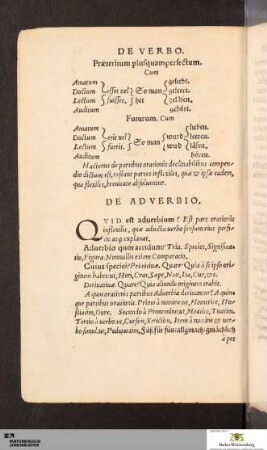 DE VERBO.
Præteritum plusquamperfectum.
Cum
Amatum geliebt.
Doctum esset uel So man geleret.
Lectum fuisset. het gelesen.
Auditum gehört.
Futurum. Cum
Amatum lieben.
Doctum erit uel So man wurd leren.
Lectum fuerit. wird lesen.
Auditum hören.
Hactenus de partibus orationis declinabilibus compen-
dio dictum est, restant partes inflexiles, quæ & ipsæ eadem,
qua flexiles, breuitate absoluentur.
DE ADVERBIO.
QVID est aduerbium? Est pars orationis
inflexilis, quæ adiecta uerbo sensum eius perfi-
cit atq; explanat.
Aduerbio quot accidunt? Tria. Species, Significa-
tio, Figura. Nonnullis etiam Comparatio.
Cuius speciei? Primitiuæ. Quare? Quia à se ipso ori-
ginem habet ut, Heri, Cras, Sæpe, Non, Ita, Cur, &c.
Deriuatiuæ. Quare? Quia aliunde originem trahit.
A quot orationis partibus Aduerbia deriuantur? A quinq;
partibus orationis. Primo à nomine ut, Homerice, Ho-
stiatim, Dure. Secundo à Pronomine ut, Meatim, Tuatim.
Tertio à uerbo ut, Cursim, Strictim. Item à nomine & uer-
bo simul ut, Pedetentim, Fuß für fuß/allgmach/gmächlich
à par
Baden-Württemberg